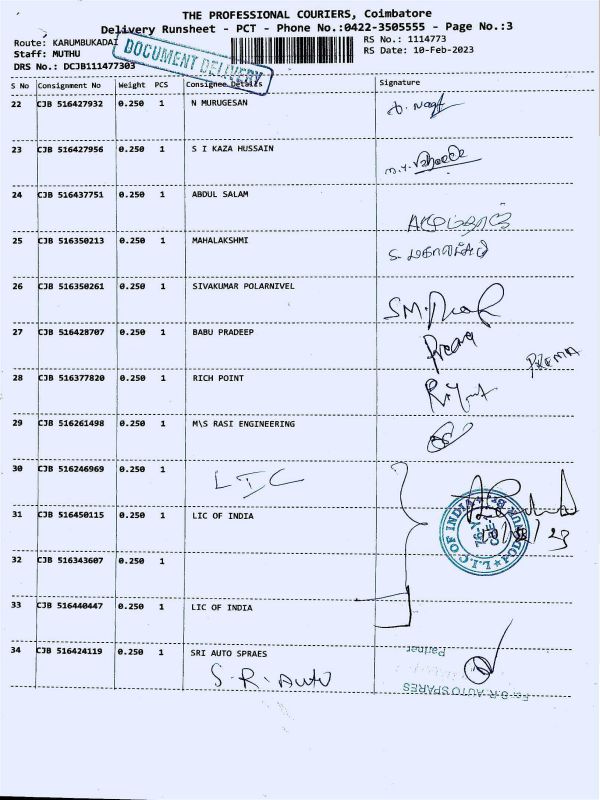 THE PROFESSIONAL COURIERS, Coimbatore
Delivery Runsheet - PCT - Phone No.:0422-3505555 - Page No.:3
Route: KARUMBUKADAI
RS No.: 1114773
Staff: MUTHU
RS Date: 10-Feb-2023
DRS No.: DCJB111477303
DOCUMENT DELIVERY
S No Consignment No Weight PCS Consignee Details Signature
22 CJB 516427932 0.250 1 N MURUGESAN
23 CJB 516427956 0.250 1 S I KAZA HUSSAIN
24 CJB 516437751 0.250 1 ABDUL SALAM
25 CJB 516350213 0.250 1 MAHALAKSHMI
26 CJB 516350261 0.250 1 SIVAKUMAR POLARNIVEL
27 CJB 516428707 0.250 1 BABU PRADEEP
PREMA
28 CJB 516377820 0.250 1 RICH POINT
29 CJB 516261498 0.250 1 M\S RASI ENGINEERING
30 CJB 516246969 0.250 1 LIC
31 CJB 516450115 0.250 1 LIC OF INDIA
32 CJB 516343607 0.250 1
33 CJB 516440447 0.250 1 LIC OF INDIA
34 CJB 516424119 0.250 1 SRI AUTO SPRAES
S.R. AUTO
Partner
For S.R. AUTO SPARES